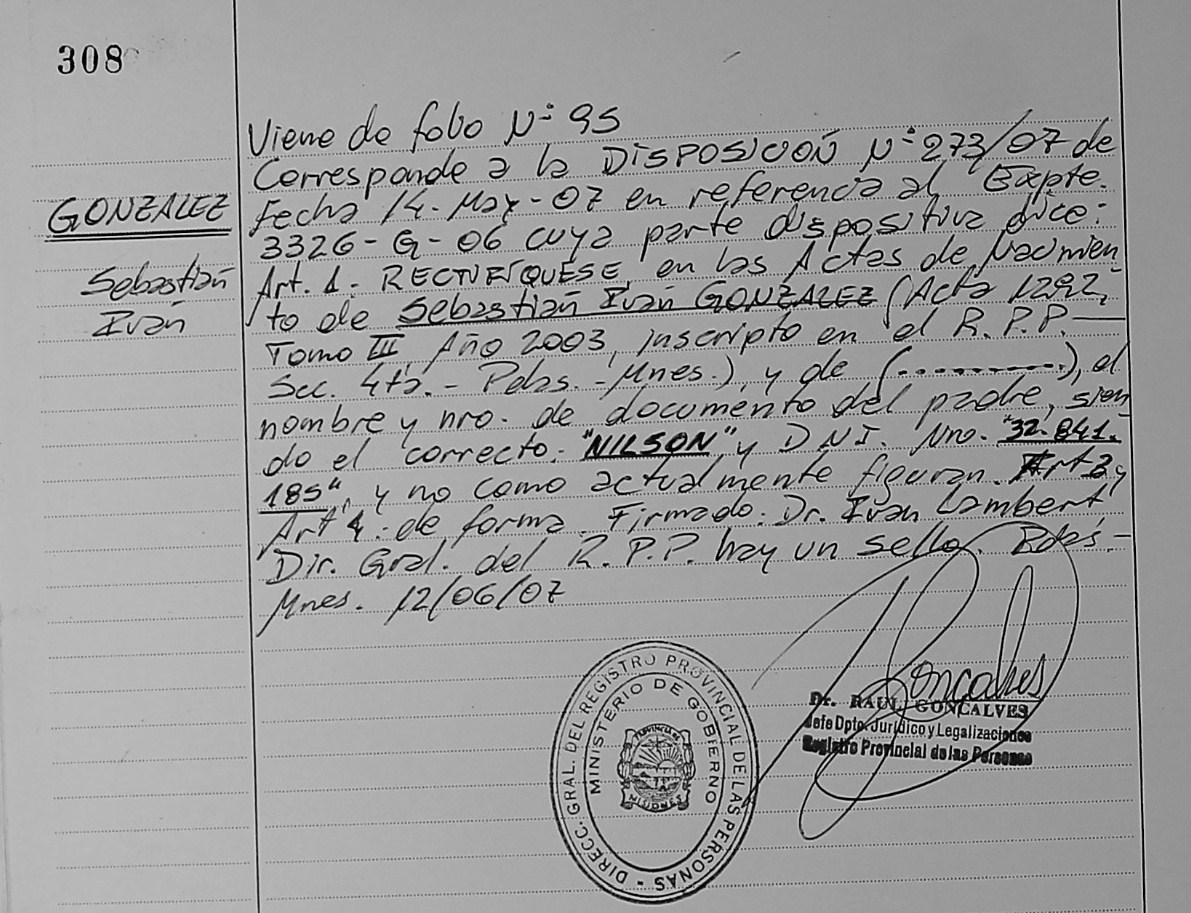 308
GONZALEZ
Sebastián
Iván
Viene de folio Nº 95
Corresponde a la DISPOSICIÓN Nº 273/07 de
fecha 14-May-07 en referencia al Expte.
3326-G-06 cuya parte dispositiva dice:
Art. 1. RECTIFÍQUESE, en las Actas de Nacimien
to de Sebastián Iván GONZALEZ (Acta 1292,
Tomo III, Año 2003, inscripto en el R.P.P.—
Sec. 4ta. - Pdas. - Mnes.), y de (..........), el
nombre y nro. de documento del padre, sien
do el correcto: "NILSON" y D.N.I. Nro. "32.841.
185", y no como actualmente figuran. Art 3 y
Art 4: de forma. Firmado: Dr. Iván Lambert,
Dir. Gral. del R.P.P. hay un sello. Pdas.-
Mnes. 12/06/07
DIRECC. GRAL. DEL REGISTRO PROVINCIAL DE LAS PERSONAS -
MINISTERIO DE GOBIERNO
PROVINCIA DE
MISIONES
Goncalves
Dr. RAUL GONCALVES
Jefe Dpto. Jurídico y Legalizaciones
Registro Provincial de las Personas